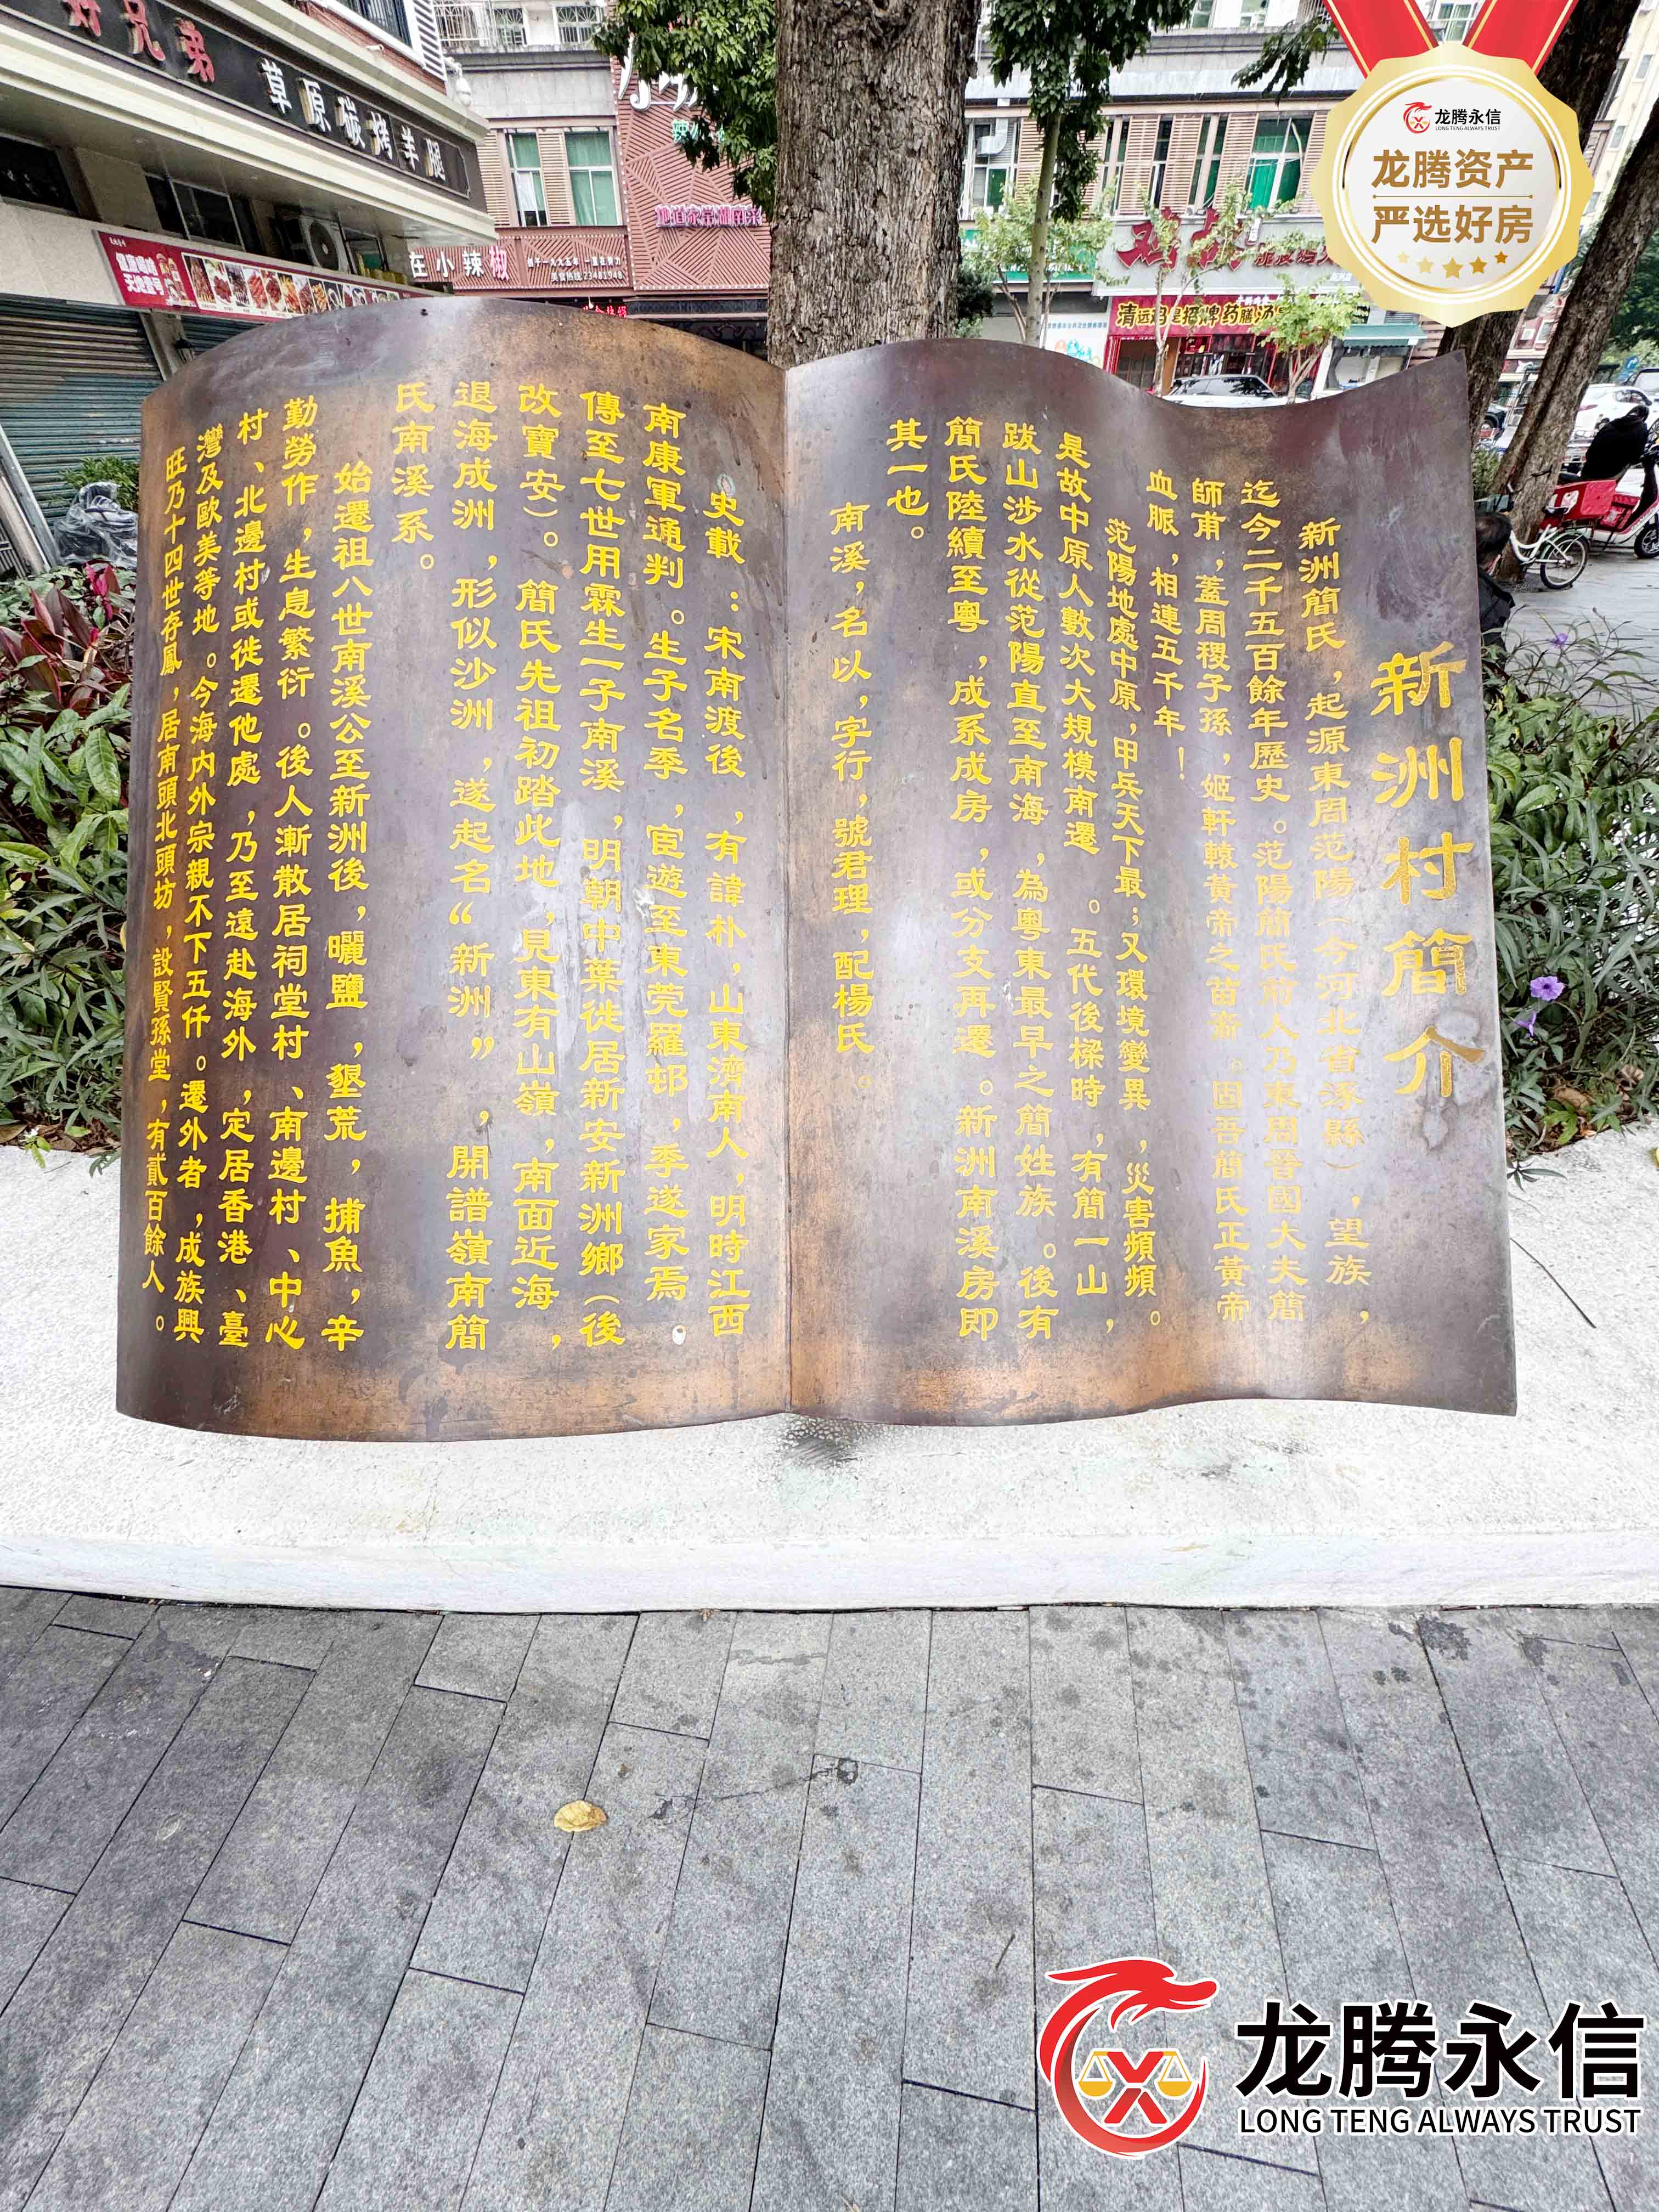 新洲村簡介
新洲簡氏，起源東周范陽（今河北省涿縣），望族，
迄今二千五百餘年歷史。范陽簡氏前人乃東周晉國大夫簡
師甫，蓋周稷子孫，姬軒轅黃帝之苗裔。固吾簡氏正黃帝
血脈，相連五千年！
范陽地處中原，甲兵天下最；又環境變異，災害頻頻。
是故中原人數次大規模南遷。五代後樑時，有簡一山，
跋山涉水從范陽直至南海，為粵東最早之簡姓族。後有
簡氏陸續至粵，成系成房，或分支再遷。新洲南溪房即
其一也。
南溪，名以，字行，號君理，配楊氏。
史載：宋南渡後，有諱朴，山東濟南人，明時江西
南康軍通判。生子名季，宦遊至東莞羅邨，季遂家焉。
傳至七世用霖生一子南溪，明朝中葉徙居新安新洲鄉（後
改寶安）。簡氏先祖初踏此地，見東有山嶺，南面近海，
退海成洲，形似沙洲，遂起名“新洲”，開譜嶺南簡
氏南溪系。
始遷祖八世南溪公至新洲後，曬鹽，墾荒，捕魚，辛
勤勞作，生息繁衍。後人漸散居祠堂村、南邊村、中心
村、北邊村或徙遷他處，乃至遠赴海外，定居香港、臺
灣及歐美等地。今海內外宗親不下五仟。遷外者，成族興
旺乃十四世存鳳，居南頭北頭坊，設賢孫堂，有貳百餘人。
好兄弟 草原碳烤羊腿
在小辣椒
创于一九九五年 一直在努力
23481948
地道永星湖南菜
清远鸡是招牌药膳汤
龙腾永信
LONG TENG ALWAYS TRUST
龙腾资产
严选好房
龙腾永信
LONG TENG ALWAYS TRUST